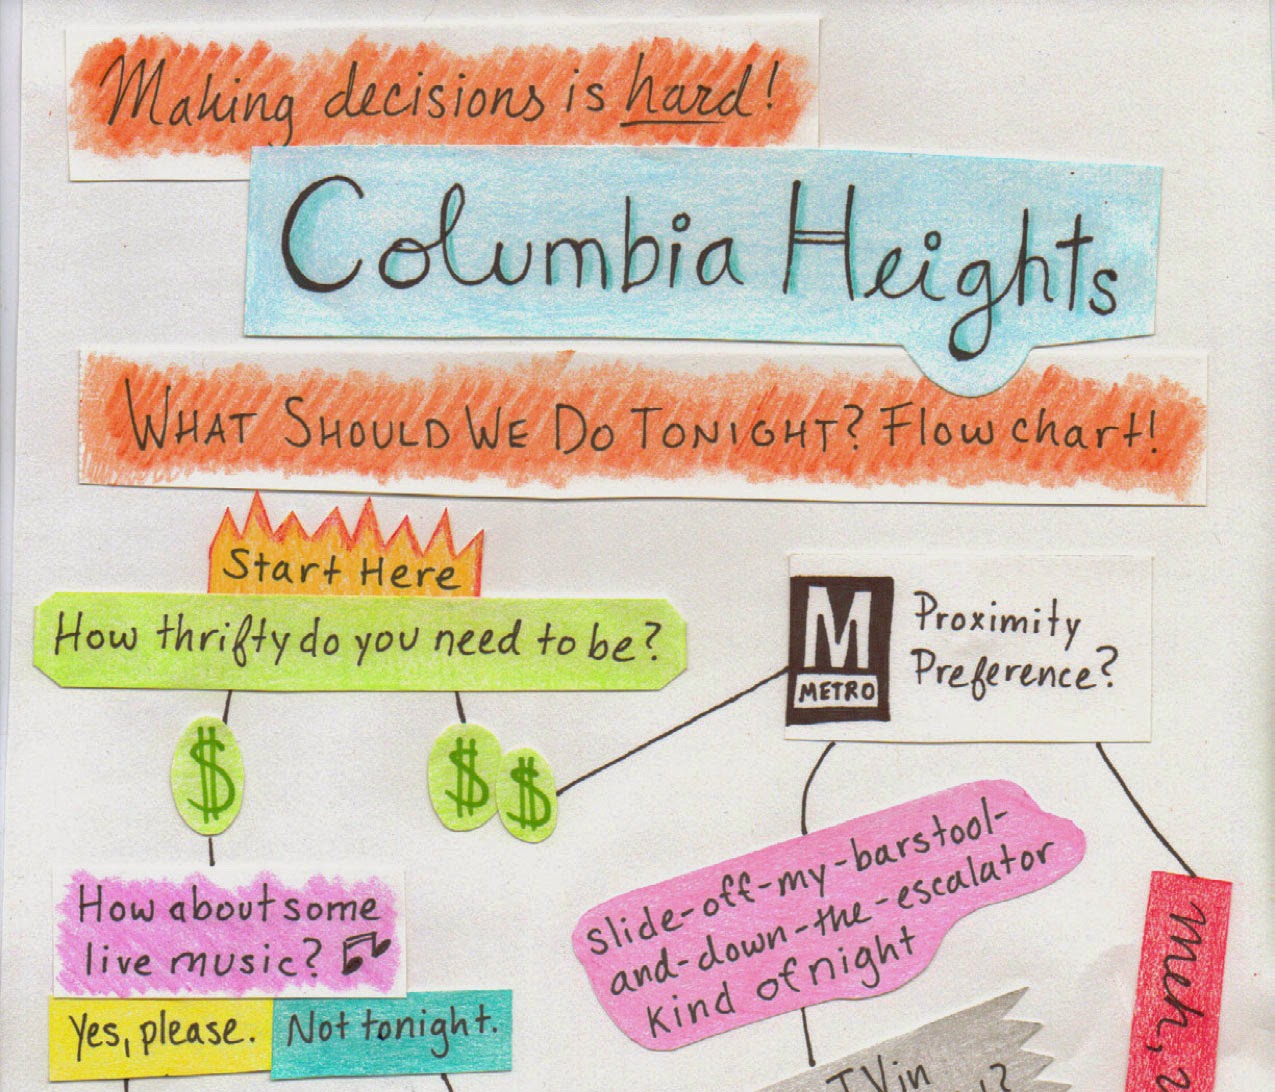 Making decisions is hard!
Columbia Heights
WHAT SHOULD WE DO TONIGHT? Flow chart!
Start Here
How thrifty do you need to be?
$
$ $
M
METRO
Proximity
Preference?
How about some
live music?
Yes, please.
Not tonight.
slide-off-my-barstool-
and-down-the-escalator
kind of night
meh,
TV in